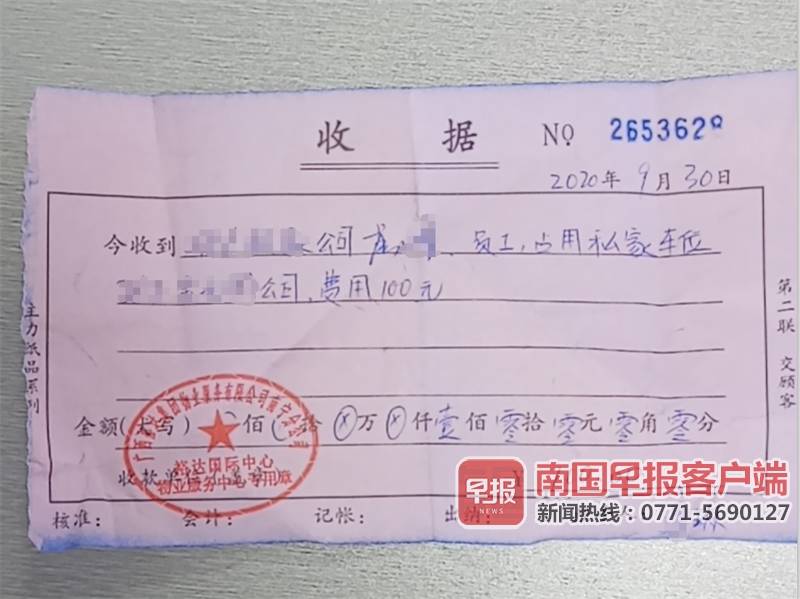 收 据 NO 2653628
2020年 9月 30日
今收到 公司 、员工,占用私家车位
公司,费用100元
金额(大写) 佰 拾 ⓧ万 ⓧ仟壹佰零拾零元零角零分
收款单位
裕达国际中心
物业服务中心专用章
核准: 会计: 记帐: 出纳:
主力纸品系列
第二联 交顾客
早报
NEWS
南国早报客户端
新闻热线:0771-5690127